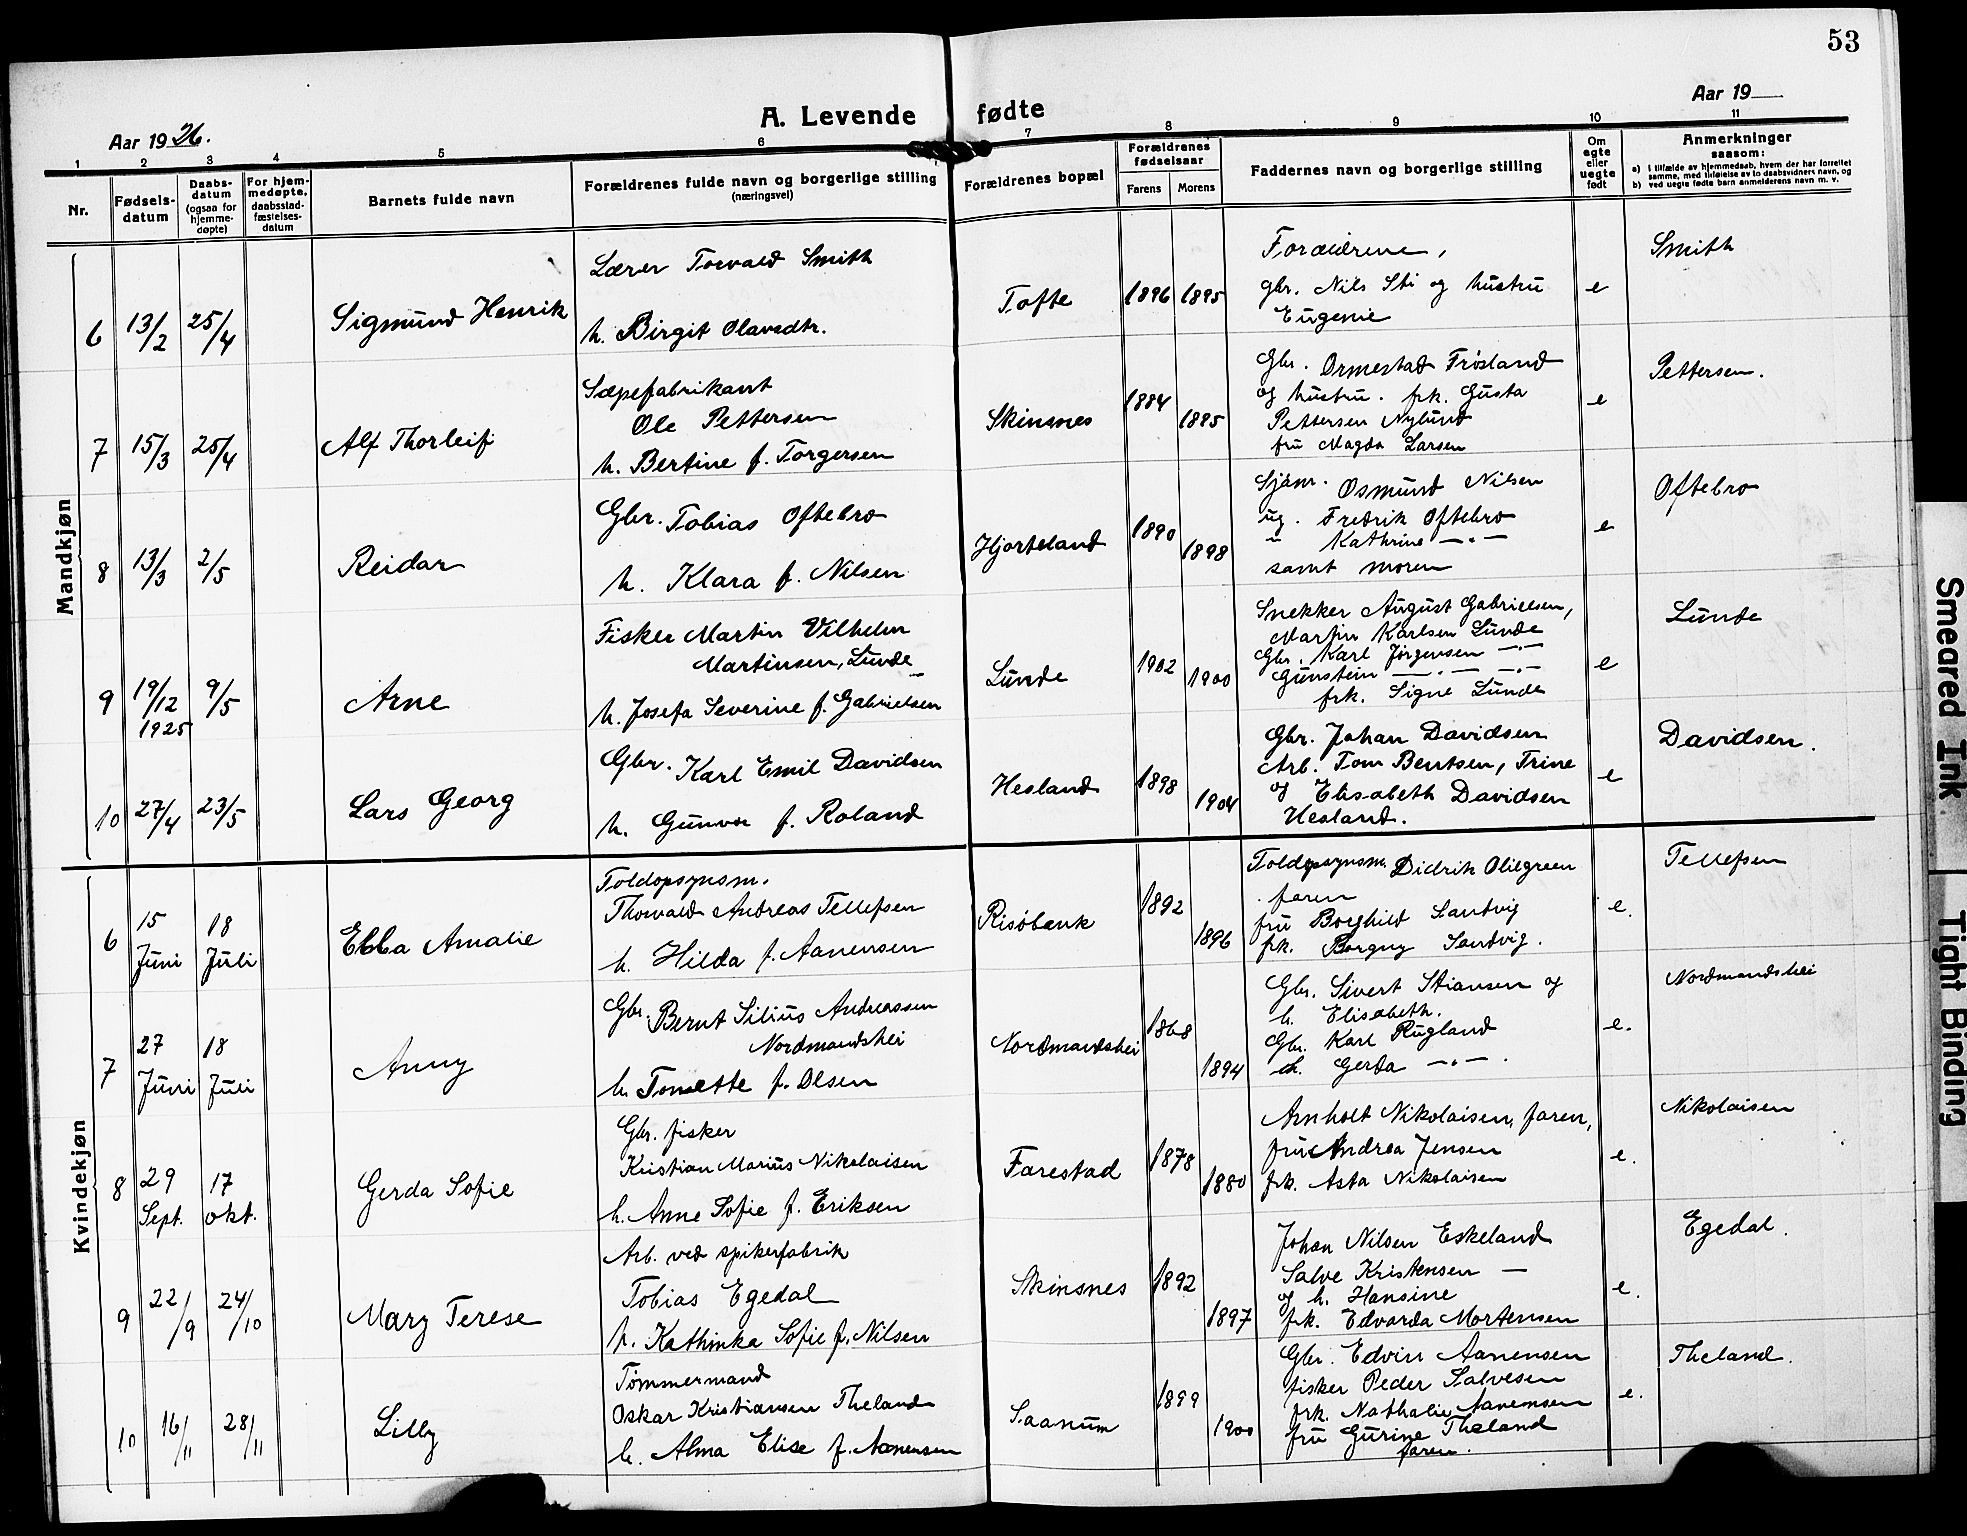 53
Aar 1926.
A. Levende fødte
Aar 19
1 2 3 4 5 6 7 8 9 10 11
Nr.
Fødsels-
datum
Daabs-
datum
(ogsaa for
hjemme-
døpte)
For hjem-
medøpte,
daabsstad-
fæstelses-
datum
Barnets fulde navn
Forældrenes fulde navn og borgerlige stilling
(næringsvei)
Forældrenes bopæl
Forældrenes
fødselsaar
Farens Morens
Faddernes navn og borgerlige stilling
Om
egte
eller
uegte
født
Anmerkninger
saasom:
a) i tilfælde av hjemmedaab, hvem der har forrettet
samme, med tilføielse av to daabsvidners navn, og
b) ved uegte fødte barn anmelderens navn m. v.
Mandkjøn
6 13/2 25/4 Sigmund Henrik
Lærer Torvald Smith
h. Birgit Olavsdtr.
Tofte 1896 1895
Forældrene,
gbr. Nils Sti og hustru
Eugenie
e
Smith
7 15/3 25/4 Alf Thorleif
Sæpefabrikant
Ole Pettersen
h. Bertine f. Torgersen
Skinsnes 1884 1885
Gbr. Ormestad Frøsland
og hustru. frk. Gusta
Pettersen Nylund
fru Magda Larsen
e
Pettersen.
8 13/3 2/5 Reidar
Gbr. Tobias Oftebro
h. Klara f. Nilsen
Hjorteland 1890 1898
Sjøm. Osmund Nilsen
ug. Fredrik Oftebro
" Kathrine — " —
samt moren
e
Oftebro
9 19/12 1925 9/5 Arne
Fisker Martin Vilhelm
Martinsen, Lunde
h. Josefa Severine f. Gabrielsen
Lunde 1902 1900
Snekker August Gabrielsen,
Martin Karlsen Lunde
Gbr. Karl Jørgensen — " —
Gunstein — " — — " —
frk. Signe Lunde
e
Lunde
10 27/4 23/5 Lars Georg
Gbr. Karl Emil Davidsen
h. Gunvor f. Roland
Hesland 1898 1904
Gbr. Johan Davidsen
Arb. Tom Berntsen, Trine
og Elisabeth Davidsen
Hesland.
e
Davidsen.
Kvindekjøn
6 15 Juni 18 Juli Ebba Amalie
Toldopsynsm.
Thorvald Andreas Tellefsen
h. Hilda f. Aanensen
Risøbank 1892 1896
Toldopsynsm. Didrik Oliegreen
faren
fru Borghild Sandvig
frk. Borgny Sandvig.
e.
Tellefsen
7 27 Juni 18 Juli Anny
Gbr. Bernt Silius Andreassen
Nordmandshei
h. Tomette f. Olsen
Nordmandshei 1868 1894
Gbr. Sivert Stiansen og
h. Elisabeth.
Gbr. Karl Rugland
h. Gerda — " —
e.
Nordmandshei
8 29 Sept. 17 okt. Gerda Sofie
Gbr. fisker
Kristian Marius Nikolaisen
h. Anne Sofie f. Eriksen
Farestad 1878 1880
Arnholt Nikolaisen, faren,
fru Andrea Jensen
frk. Asta Nikolaisen
e.
Nikolaisen
9 22/9 24/10 Mary Terese
Arb. ved spikerfabrik
Tobias Egedal
h. Kathinka Sofie f. Nilsen
Skinsnes 1892 1897
Johan Nilsen Eskeland
Salve Kristensen —
og h. Hansine
frk. Edvarda Mortensen
e.
Egedal.
10 16/11 28/11 Lilly
Tømmermand
Oskar Kristiansen Theland
h. Alma Elise f. Aanensen
Saanum 1899 1900
Gbr. Edvin Aanensen
fisker Peder Salvesen
frk. Nathalie Aanensen
fru Gurine Theland
faren.
e.
Theland.
Smeared Ink
Tight Binding